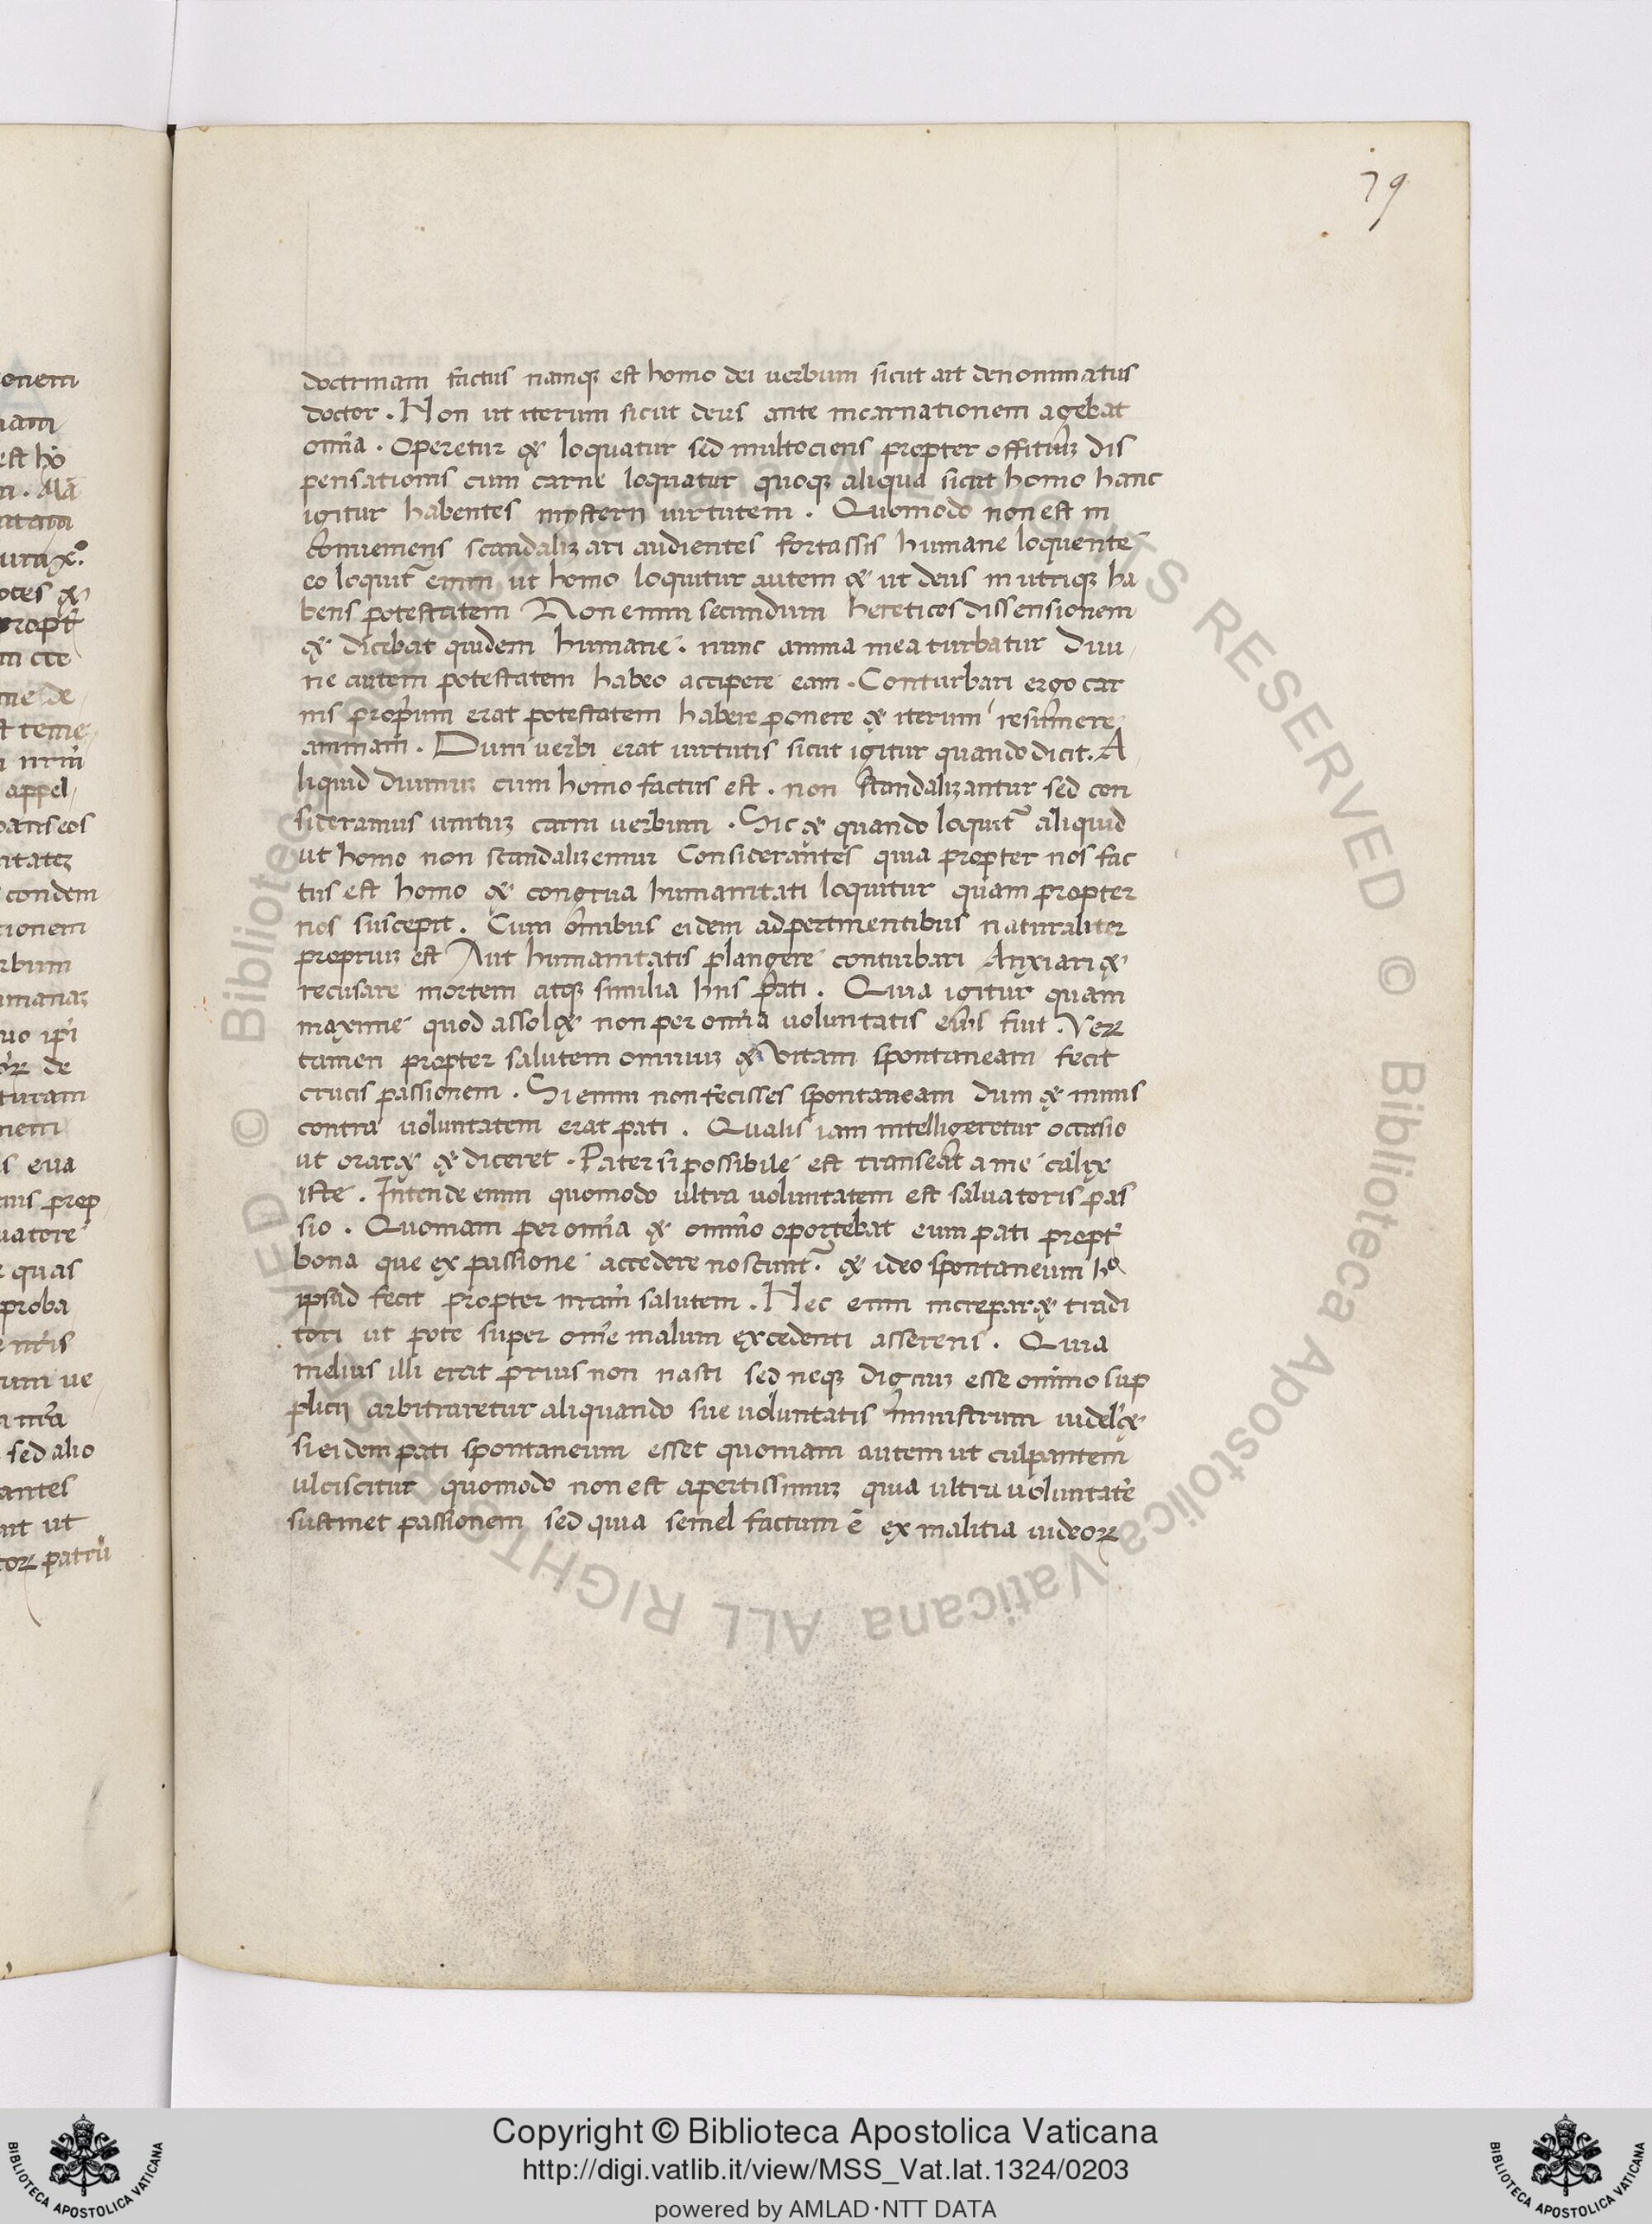 79
doctrinam factus namqȝ est homo dei uerbum sicut ait denominatus
doctor . Non ut iterum sicut deus ante incarnationem agebat
om̄ia . operetur & loquatur sed multociens propter offitiuȝ dis
pensationis cum carne loquatur quoqȝ aliqua sicut homo hanc
igitur habentes misterii uirtutem . Quomodo non est in
conueniens scandalizari audientes fortassis humane loquente
eo loquit᷑ enim ut homo loquitur autem & ut deus in utriqȝ ha
bens potestatem Non enim secundum hereticos dissensionem
& dicebat quidem humane . nunc anima mea turbatur Diui
ne autem potestatem habeo accipere eam . Conturbari ergo car
nis proprium erat potestatem habere ponere & iterum resumere
animam . Dum uerbi erat uirtutis sicut igitur quando dicit . A
liquid diuinuȝ cum homo factus est . non scandalizantur sed con
sideramus unituȝ carni uerbum . Sic & quando loquit᷑ aliquid
ut homo non scandalizemur Considerantes quia propter nos fac
tus est homo & congrua humanitati loquitur quam propter
nos suscepit . Cum omibus eidem adpertinentibus naturaliter
propriuȝ est Aut humanitatis plangere conturbari Anxiari &
recusare mortem atqȝ similia hiis pati . Quia igitur quam
maxime quod assol& non per om̄ia uoluntatis eius fiut . Veꝝ
tamen propter salutem omniuȝ & uitam spontaneam fecit
crucis passionem . Si enim non fecisses spontaneam dum & nimis
contra uoluntatem erat pati . Qualis iam intelligeretur occasio
ut orar& & diceret . Pater si possibile est transeat a me calix
iste . Intende enim quomodo ultra uoluntatem est saluatoris pas
sio . Quoniam per om̄ia & omnino oportebat eum pati propt᷑
bona que ex passione accedere noscunt᷑ . & ideo spontaneum hᵒ
ipsad fecit propter nr̄am salutem . Nec enim increpar& tradi
tori ut pote super om̄e malum excedenti asserens . Quia
melius illi erat prius non nasci sed neqȝ dignuȝ esse om̄ino sup
plicii arbitraretur aliquando sue uoluntatis ministrum uidel&
si eidem pati spontaneum esset quoniam autem ut culpantem
ulciscitur quomodo non est apertissimuȝ quia ultra uoluntatē
sustinet passionem sed quia semel factum ē ex malitia iudeoꝝ
Copyright © Biblioteca Apostolica Vaticana
http://digi.vatlib.it/view/MSS_Vat.lat.1324/0203
powered by AMLAD·NTT DATA
BIBLIOTECA APOSTOLICA VATICANA
BIBLIOTECA APOSTOLICA VATICANA